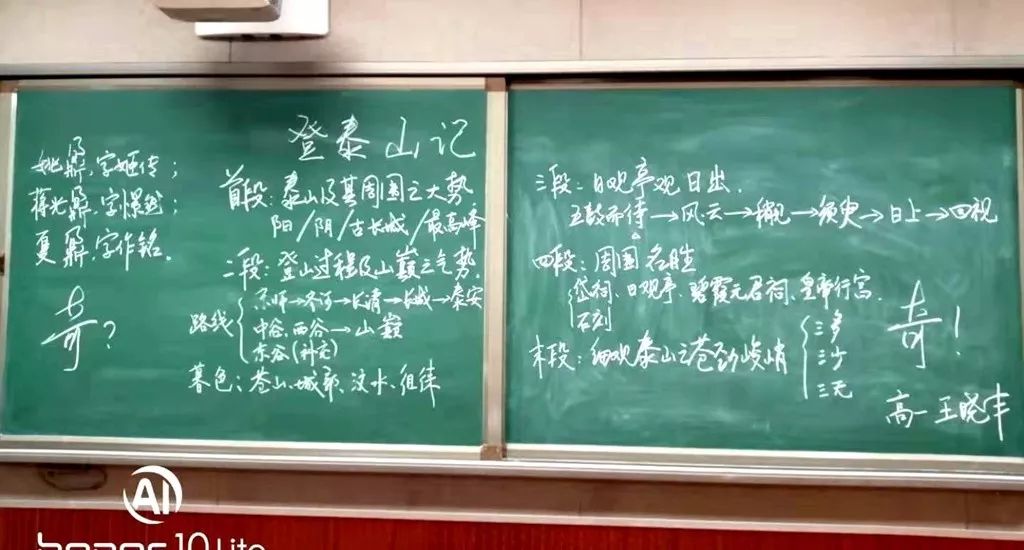 登泰山记
姚鼐,字姬传;
蒋光鼐,字憬然;
夏鼐,字作铭.
奇?
首段:泰山及其周围之大势
阳/阴/古长城/最高峰
二段:登山过程及山巅之气势.
路线
京师→齐河→长清→长城→泰安
中谷、西谷→山巅
东谷(补充)
暮色:苍山、城郭、汶水、徂徕
三段:日观亭观日出.
五鼓 待→风云→ →须臾→日上→回视
四段:周围名胜
岱祠、日观亭、碧霞元君祠、皇帝行宫、
石刻
末段:细观泰山之苍劲峻峭
三多
三少
三无
奇!
高一王晓丰
AI
honor 10 Lite